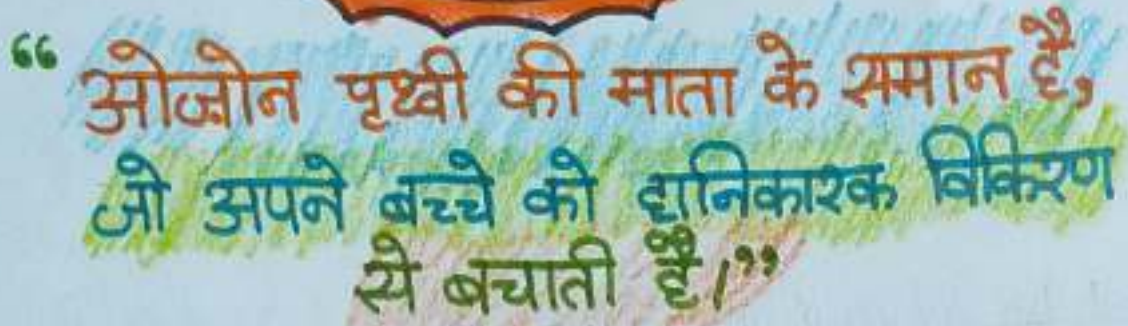 “ ओज़ोन पृथ्वी की माता के समान है,
जो अपने बच्चे को हानिकारक विकिरण
से बचाती है।”